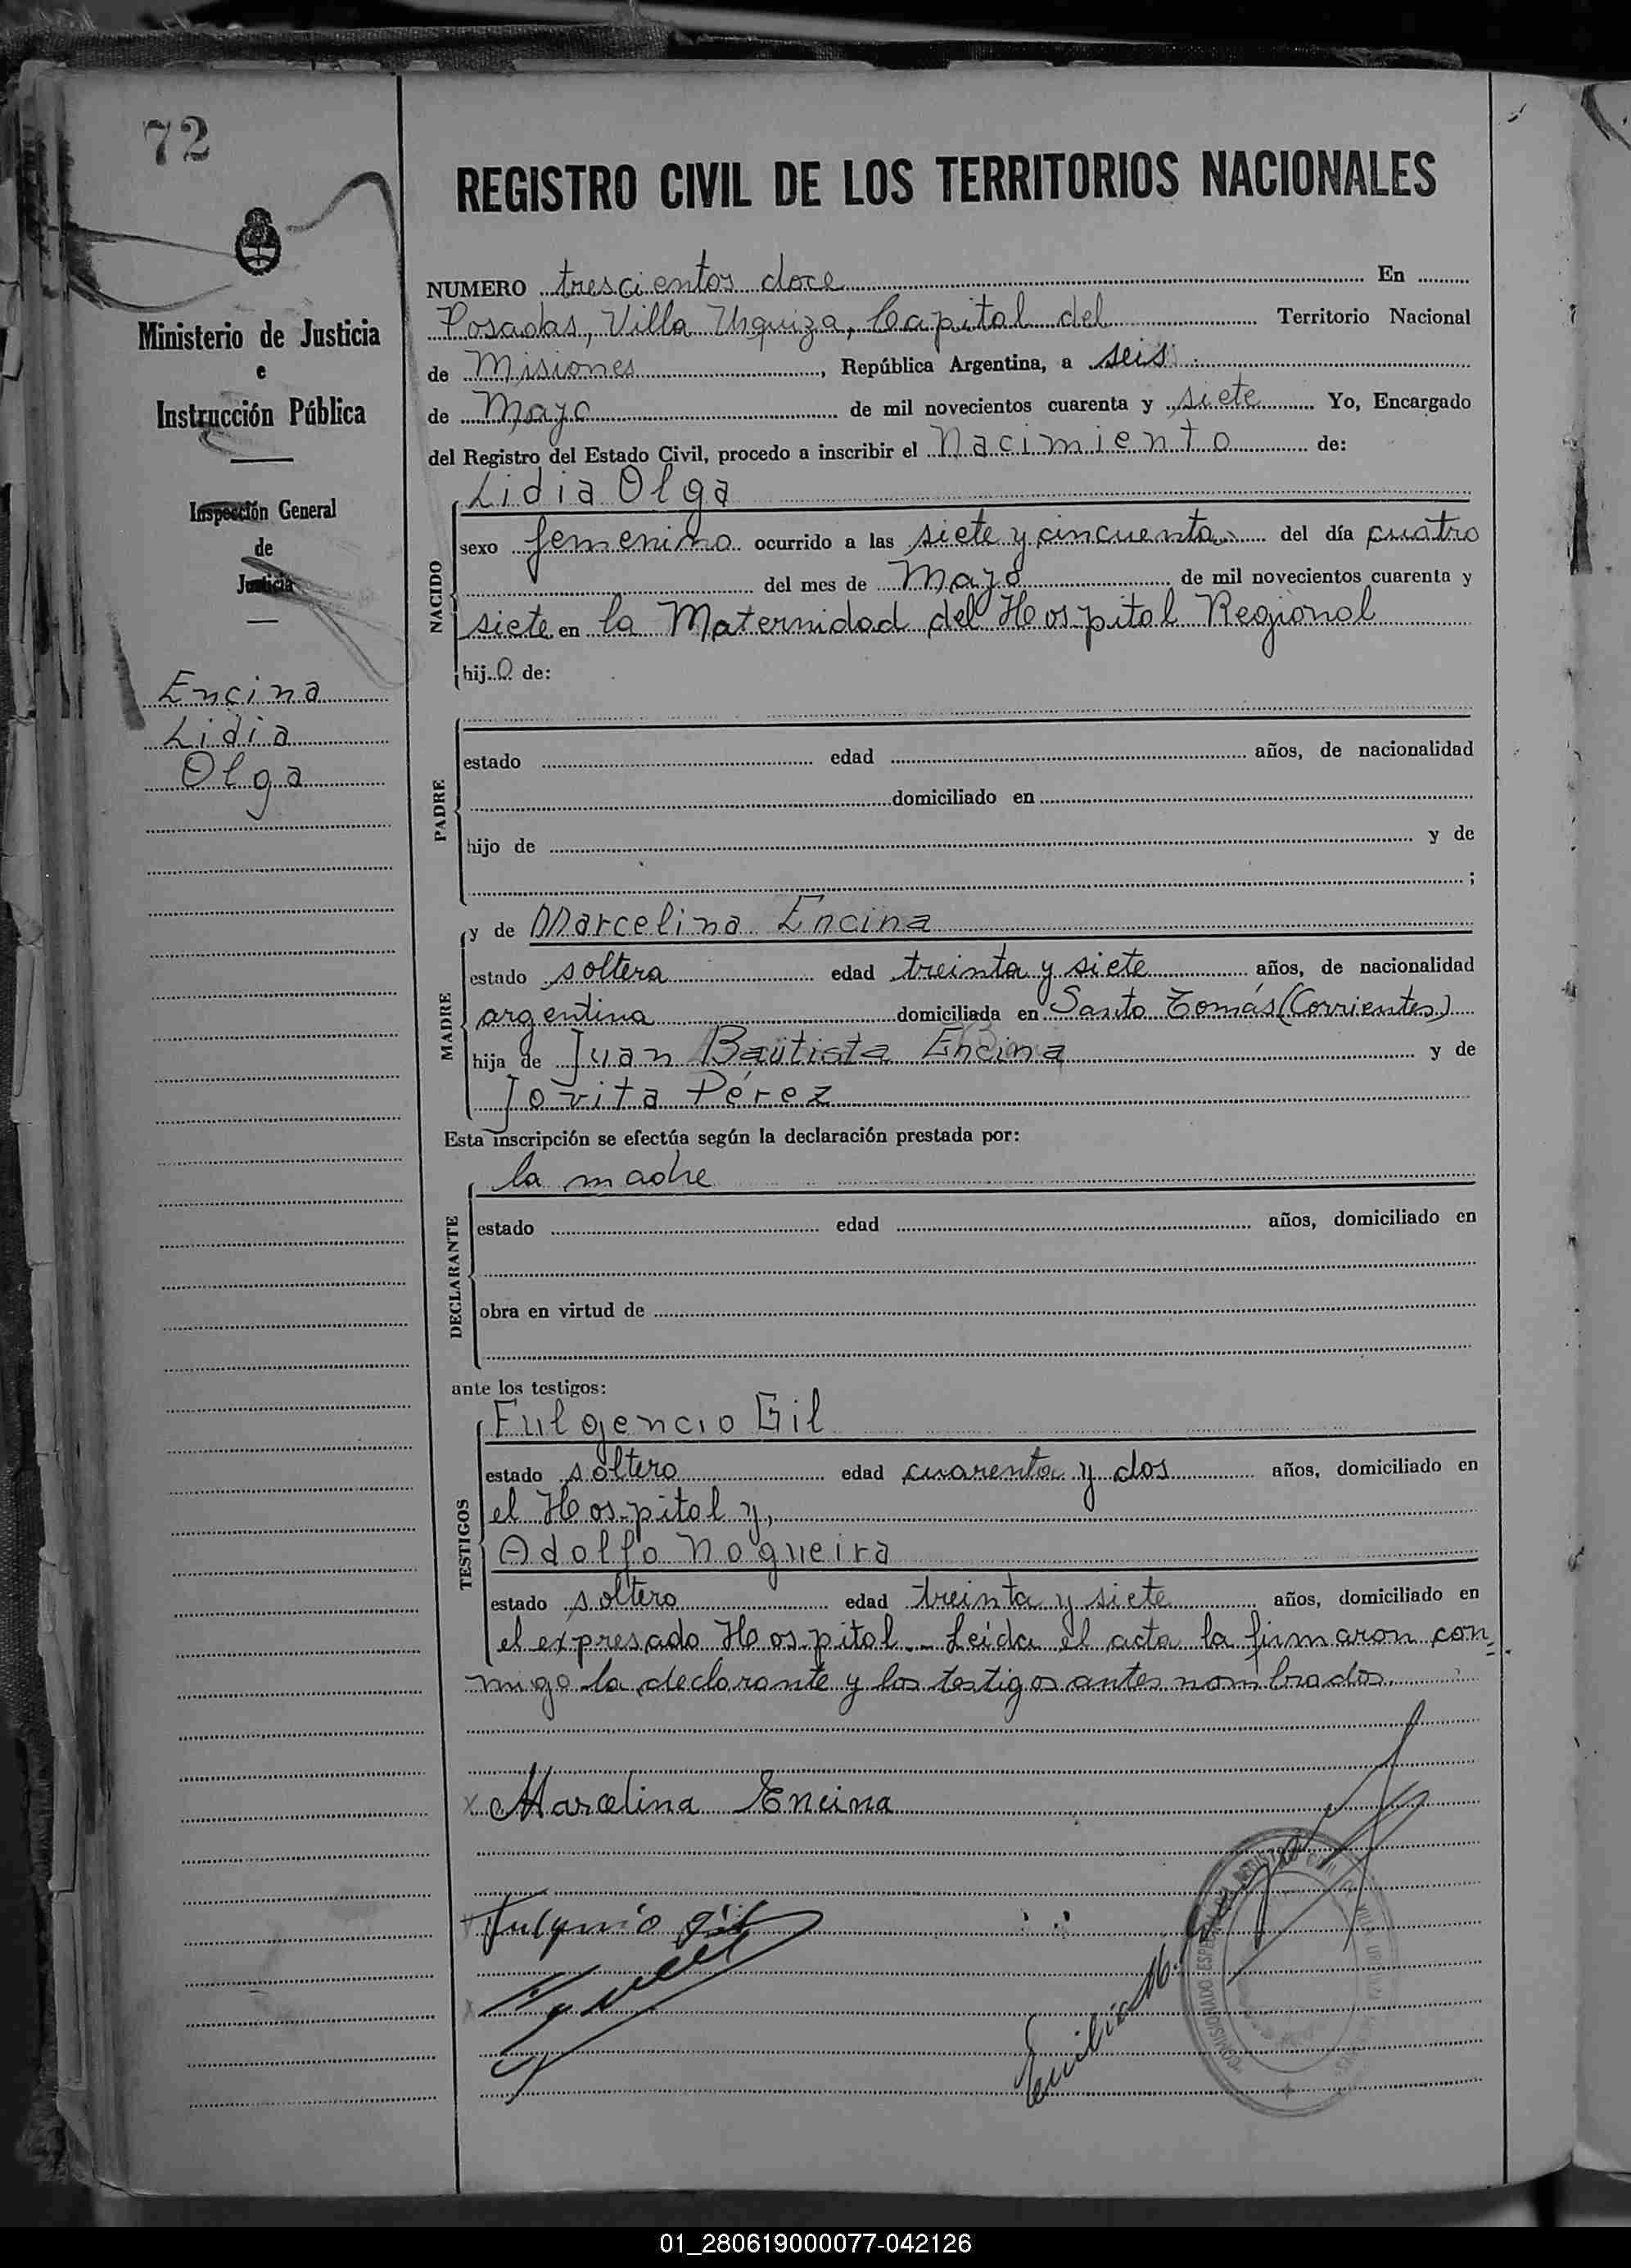 72
REGISTRO CIVIL DE LOS TERRITORIOS NACIONALES
Ministerio de Justicia
e
Instrucción Pública
Inspección General
de
Justicia
Encina
Lidia
Olga
NUMERO trescientos doce En
Posadas, Villa Urquiza, Capital del Territorio Nacional
de Misiones, República Argentina, a seis
de Mayo de mil novecientos cuarenta y siete Yo, Encargado
del Registro del Estado Civil, procedo a inscribir el Nacimiento de:
NACIDO
Lidia Olga
sexo femenino ocurrido a las siete y cincuenta del día cuatro
del mes de Mayo de mil novecientos cuarenta y
siete en la Maternidad del Hospital Regional
hija de:
PADRE
estado edad años, de nacionalidad
domiciliado en
hijo de y de
;
MADRE
y de Marcelina Encina
estado soltera edad treinta y siete años, de nacionalidad
argentina domiciliada en Santo Tomás (Corrientes)
hija de Juan Bautista Encina y de
Jovita Pérez
Esta inscripción se efectúa según la declaración prestada por:
DECLARANTE
la madre
estado edad años, domiciliado en
obra en virtud de
ante los testigos:
TESTIGOS
Fulgencio Gil
estado soltero edad cuarenta y dos años, domiciliado en
el Hospital y,
Adolfo Nogueira
estado soltero edad treinta y siete años, domiciliado en
el expresado Hospital.- Leída el acta la firmaron con=
migo la declarante y los testigos antes nombrados.
x Marcelina Encina
Fulgencio Gil
x
Emilia M.
COMISIONADO ESPECIAL REGISTRO CIVIL VILLA URQUIZA MISIONES
01_280619000077-042126